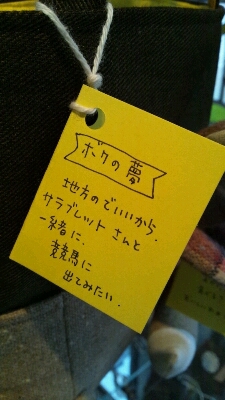 ボクの夢
地方のでいいから、
サラブレット さんと
一緒に、
競馬に
出てみたい。